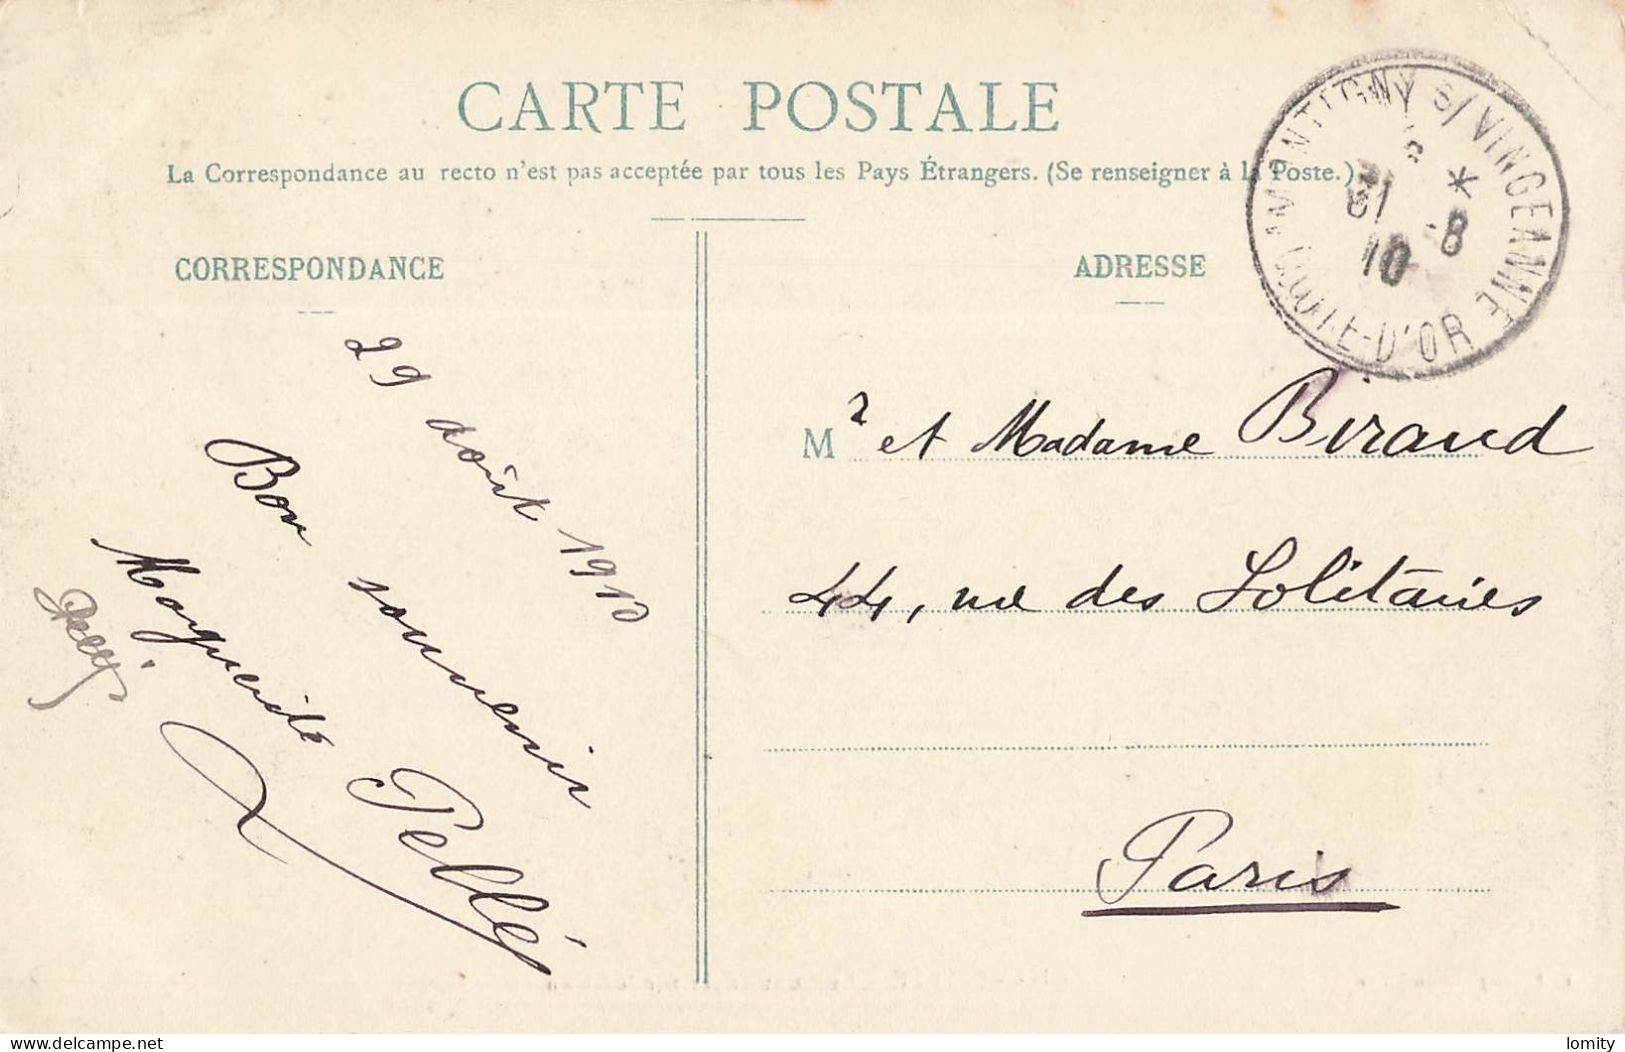 CARTE POSTALE
La Correspondance au recto n'est pas acceptée par tous les Pays Étrangers. (Se renseigner à la Poste.)
MONTIGNY S/VINGEANNE
*
31 -8
10
COTE-D'OR
CORRESPONDANCE
ADRESSE
29 août 1910
Bon souvenir
Marguerite Pellé
Mr et Madame Biraud
44, rue des Solitaires
Paris
delcampe.net
lomity